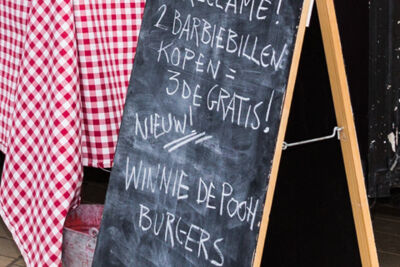 RECLAME!
2 BARBIEBILLEN
KOPEN =
3DE GRATIS!
NIEUW!
WINNIE DE POOH
BURGERS